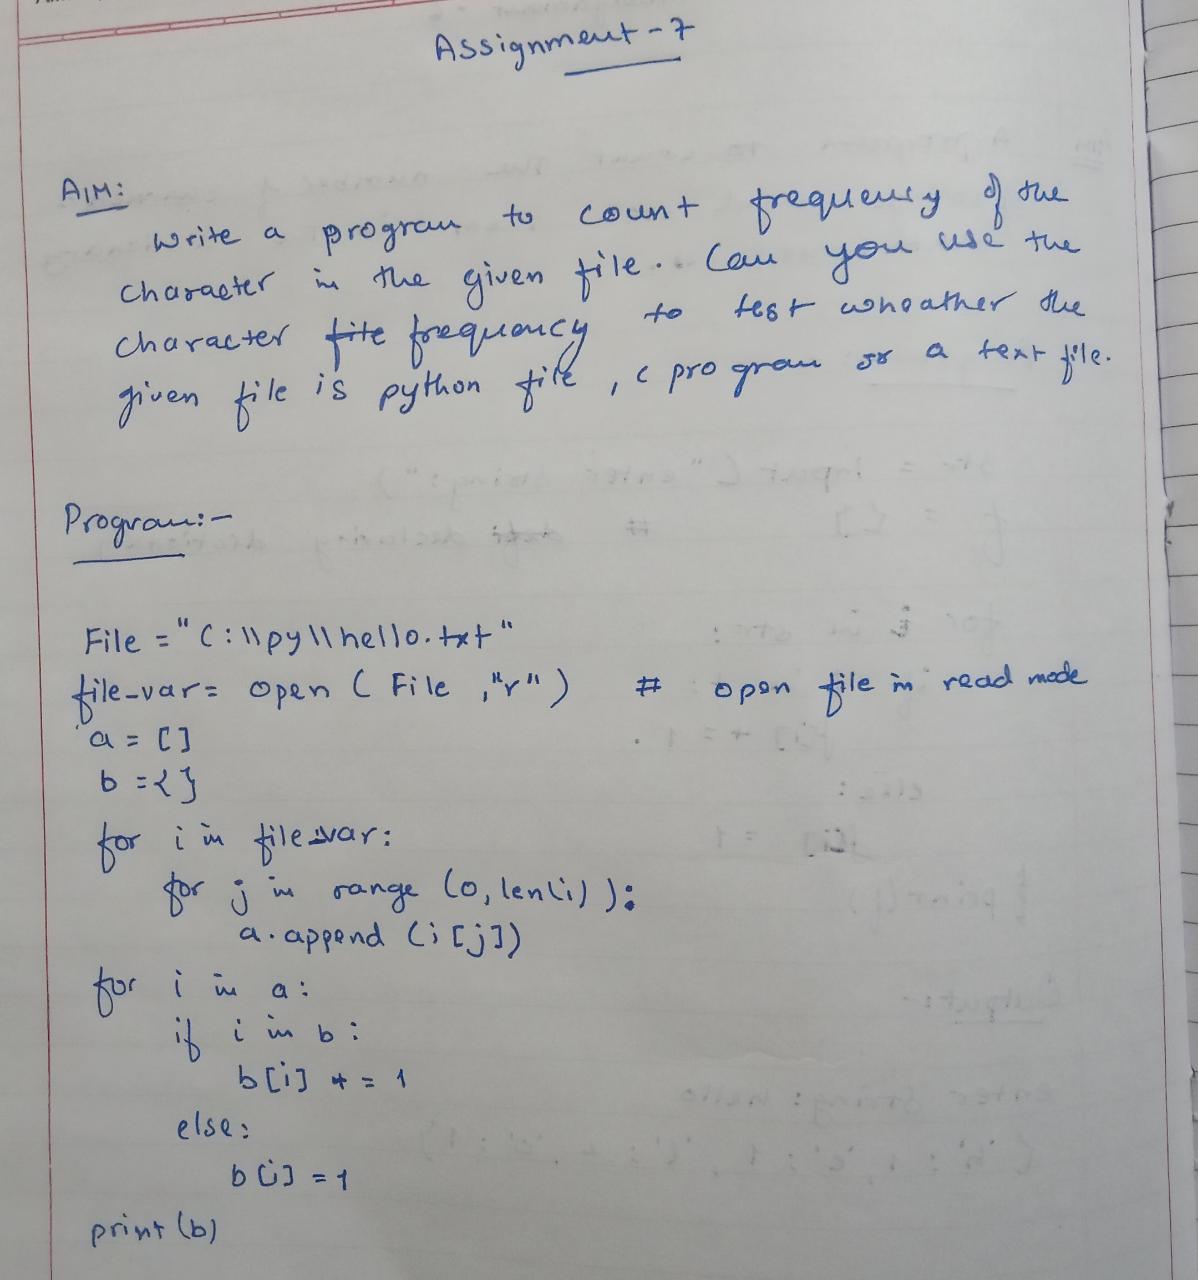 Assignment-7
AIM:
Write a program to count frequency of the
character in the given file. Can you use the
character file frequency to test whoather the
given file is python file, c program or a text file.
Program:-
File = "C:\\py\\hello.txt"
file_var = open ( File ,"r") # open file in read mode
a = []
b = {}
for i in file_var:
for j in range (0, len(i) ):
a.append (i[j])
for i in a:
if i in b:
b[i] += 1
else:
b[i] = 1
print (b)